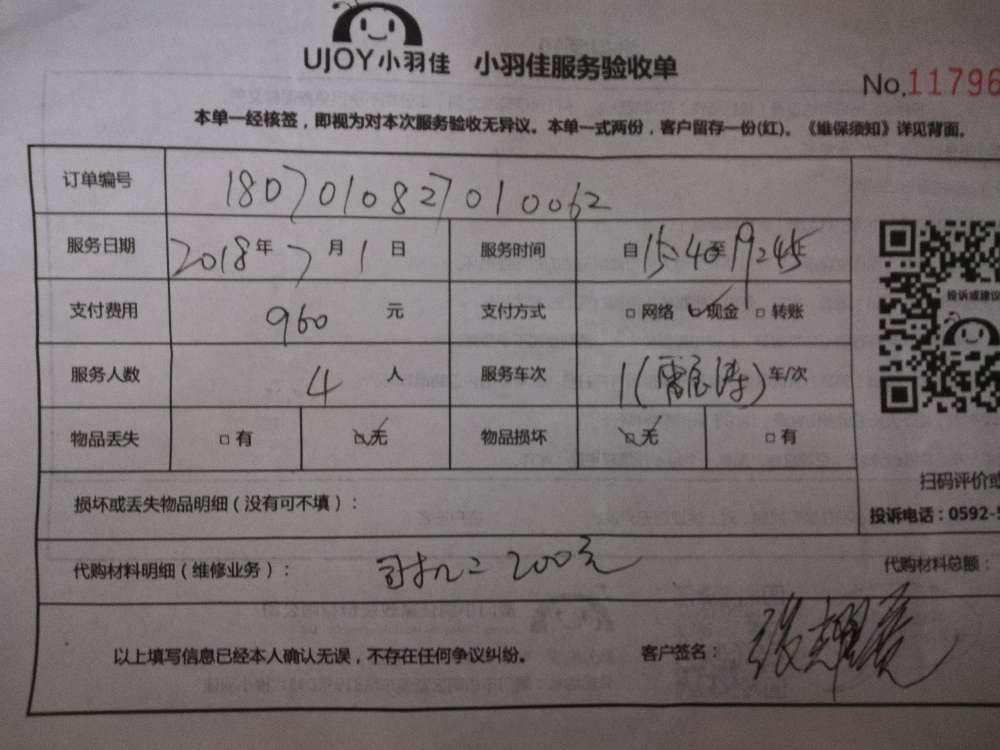 UJOY小羽佳 小羽佳服务验收单
No.11796
本单一经核签，即视为对本次服务验收无异议。本单一式两份，客户留存一份(红)。《维保须知》详见背面。
订单编号 1807010827010062
服务日期 2018年7月1日 服务时间 自15:40至19:45止
支付费用 960 元 支付方式 □网络 □现金 □转账
服务人数 4 人 服务车次 1( )车/次
物品丢失 □有 □无 物品损坏 □无 □有
投诉或建议
扫码评价或
损坏或丢失物品明细（没有可不填）：
投诉电话：0592-5
代购材料明细（维修业务）： 司机：200元 代购材料总额：
以上填写信息已经本人确认无误，不存在任何争议纠纷。 客户签名：